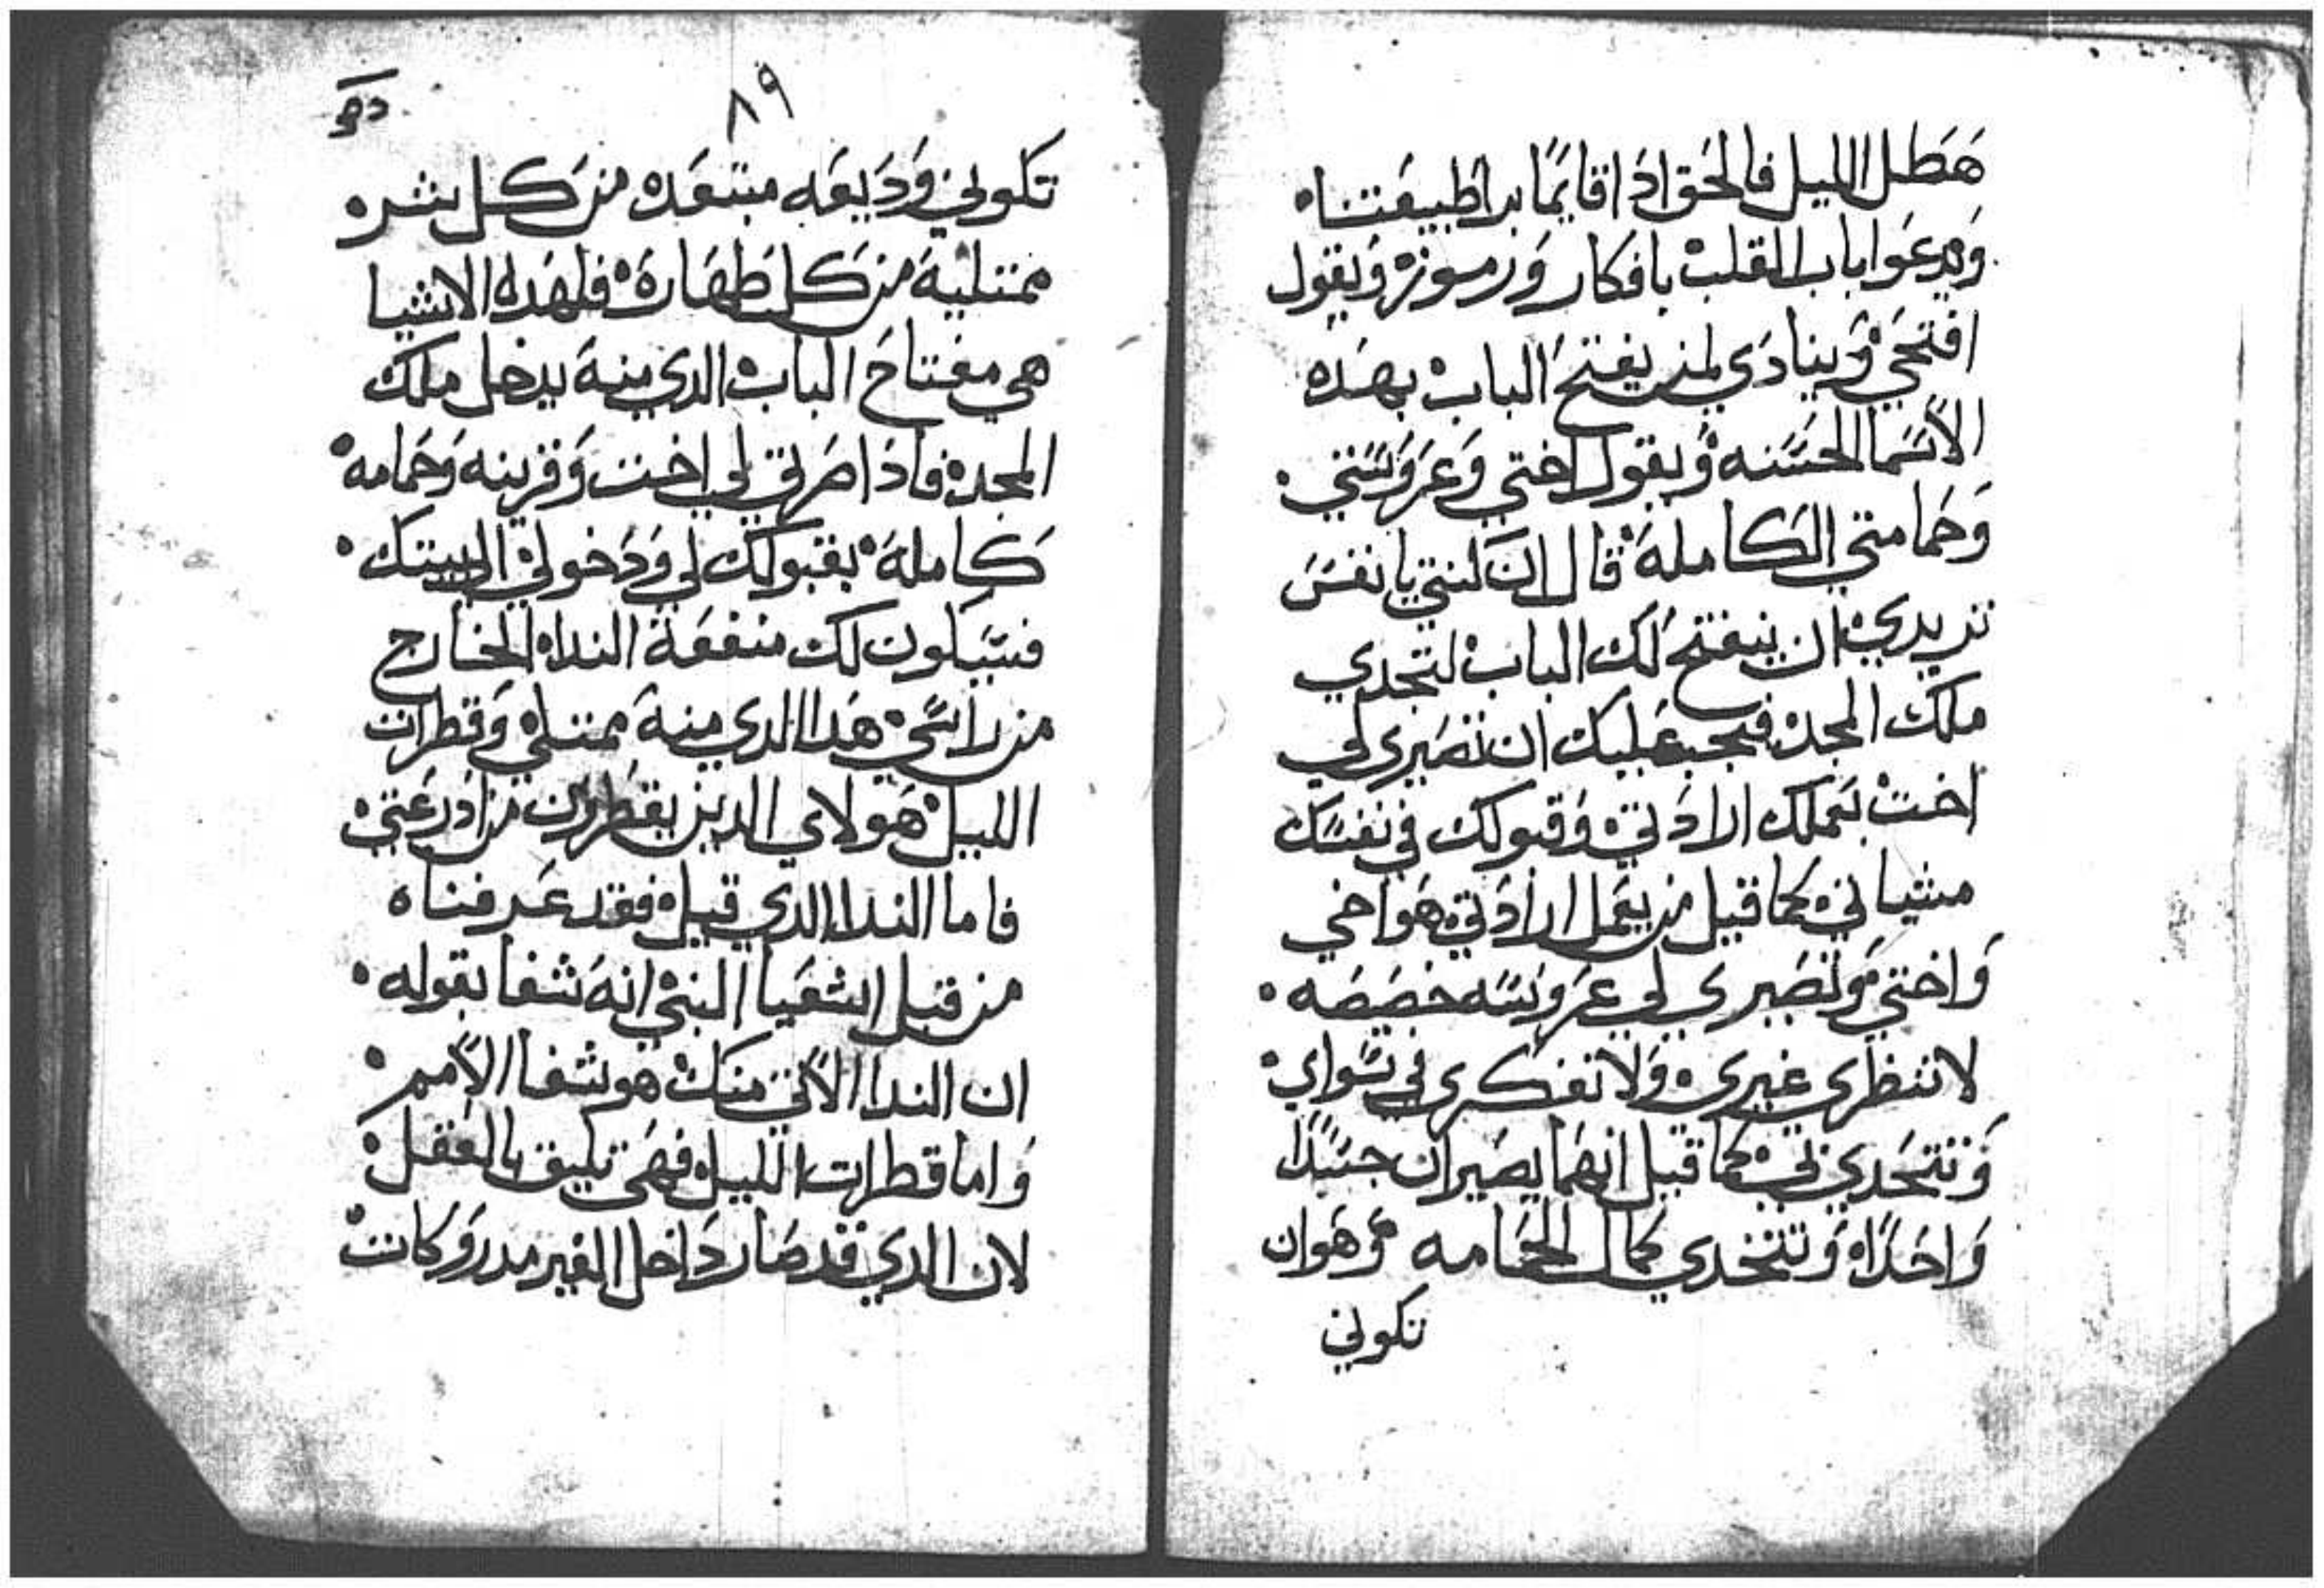 هَطل الليل فالحَق اذا قايمًا بدا طبيعتنا ه
وَيدعَوا باب القلب بافكار وَرموزه وَيقول
افتحَي وَينادَي لمن يفتح الباب بهَده
الاسَما الحَسَنه وَيقول اختي وَعرَوسَتي .
وَحَمامتي الكاملة قال ان كنتي يا نفسَ
تريدي ان ينفتح لك الباب لتجدي
ملك المجد فيجب عَليك ان تصَيري لي
اخت بعَملك ارادَتي وَقبولك في نفسَك
مشياتي كما قيل من يعَمل ارادَتي هَو اخي
وَاختي وَتصَيري لي عرَوسَه خصَصَه .
لا تنظري غيري وَلا تفكري في سَواي
وَتتحَدي بي كما قيل انهَما يصَيران جسَدًا
وَاحَدًا ه وَتتخدي كمال الحَمامه وَهَو ان
تكوني
٨٩
تكوني وَدَيعَه مبتعَده من كل شره
ممتلية من كل طهَارة فلهَده الاشيا
هي مفتاح الباب الدي منة يدخل ملك
المجد فاذا صَرتي لي اخت وَقرينه وَحَمامه
كاملة بقبولك لي وَدَخولي الي بيتك .
فسَيكون لك منفعَة النداه الخارج
من راسَي هَدا الدي منة ممتلي وَقطرات
الليل هَولاي الدين يقطرون من ادَرعَتي
فاما الندا الدي قيل فقد عَرفناه
من قبل اشعَيا النبي انة شفا بقوله .
ان الندا الاتي منك هو شفا الامم .
وَاما قطرات الليل فهَي تليق بالعَقل
لان الدي قد صَار دَاخل الغير مدروَكات